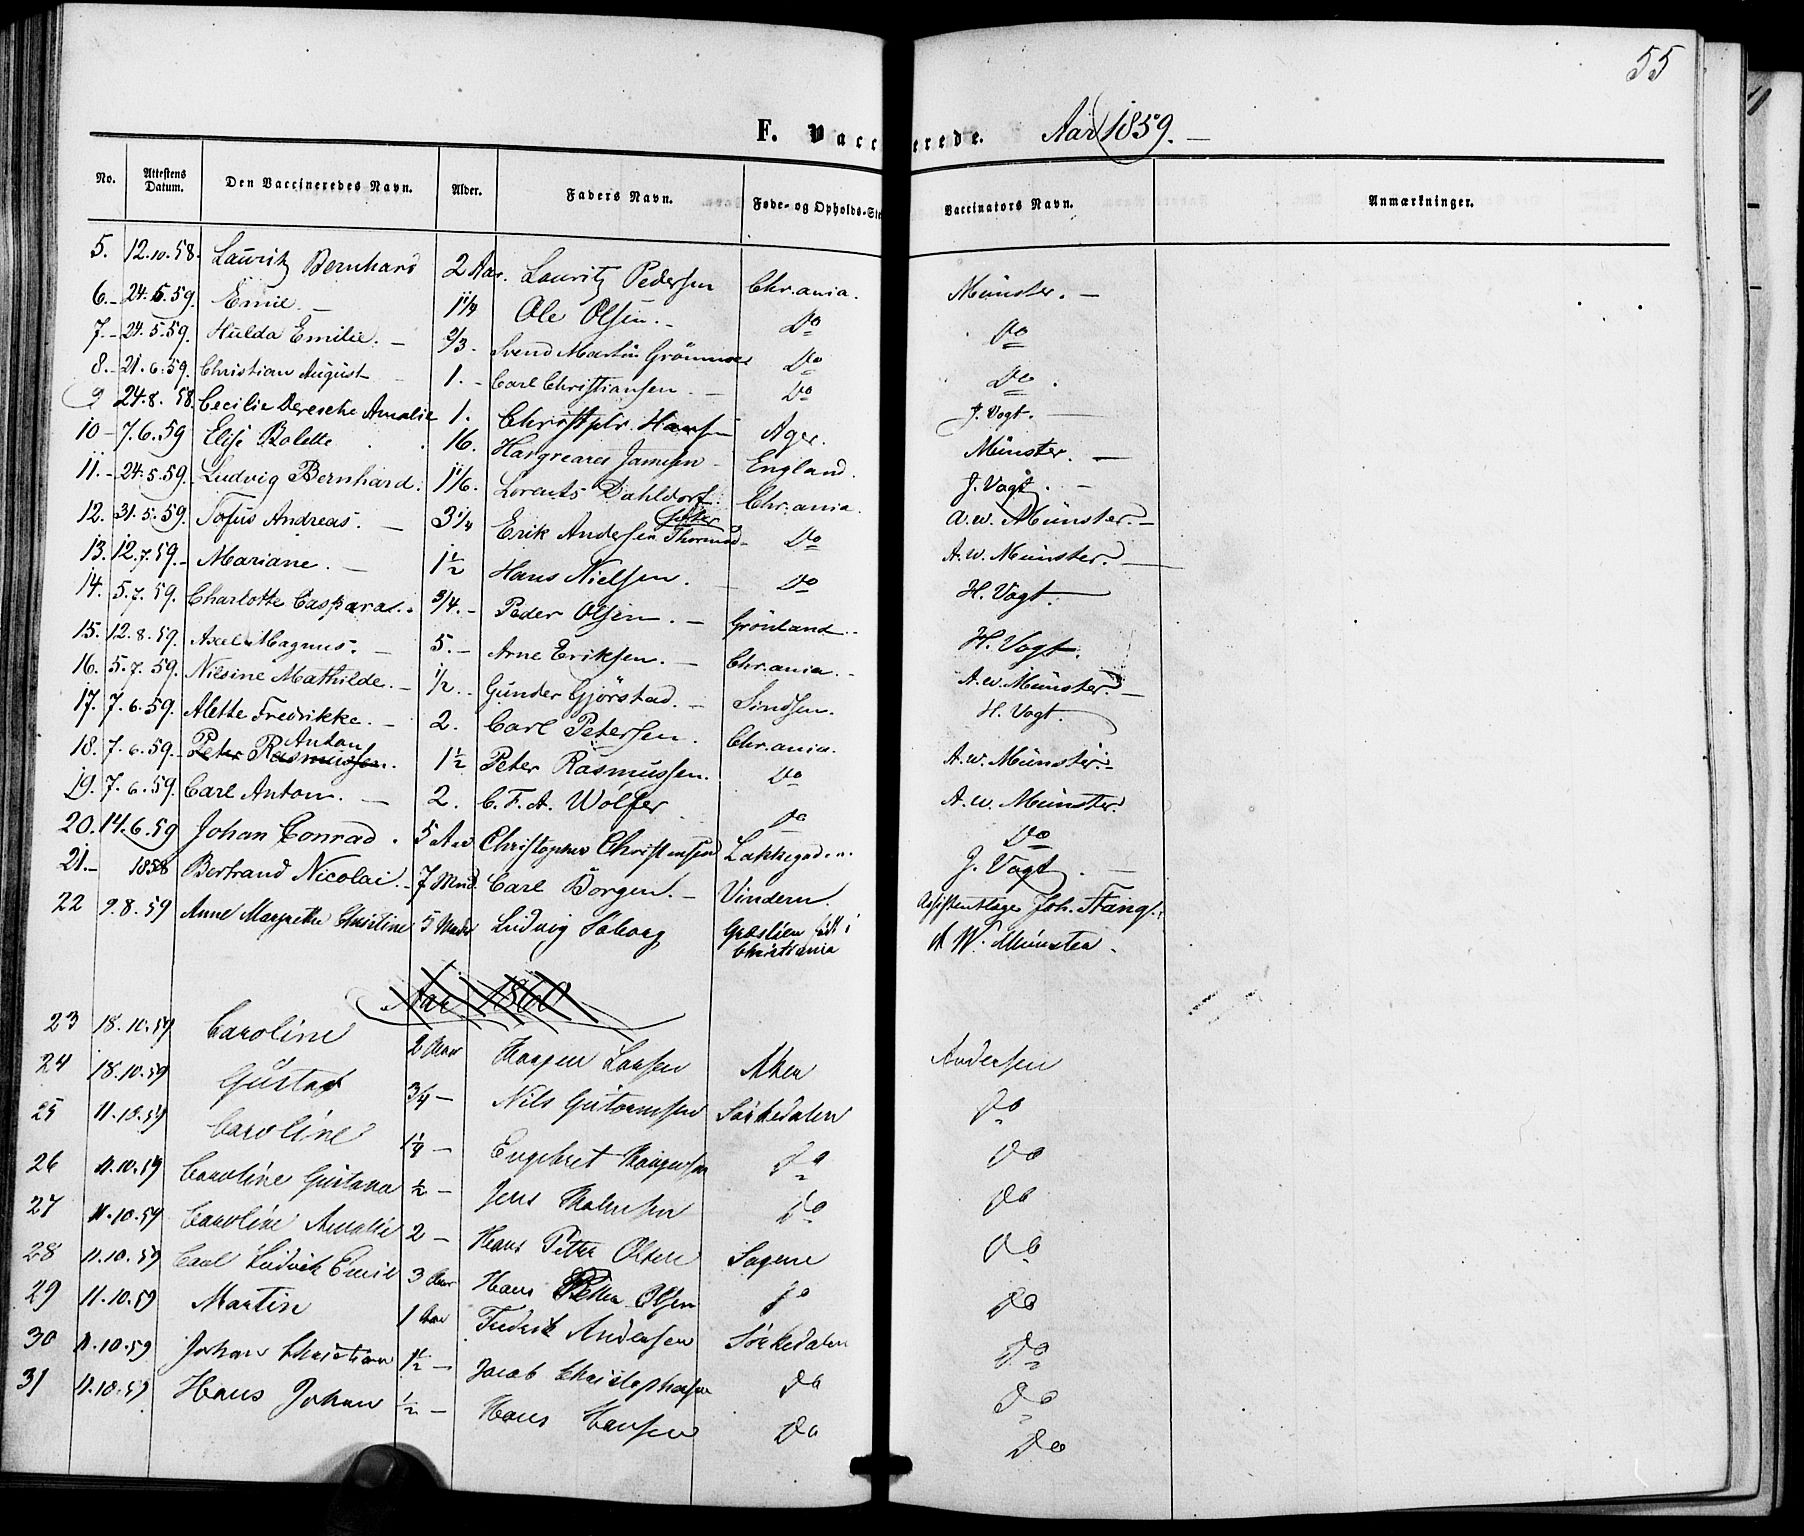 55
F. Vaccinerede. Aar 1859.
No. Attestens Datum. Den Vaccineredes Navn. Alder. Faders Navn. Føde- og Opholds-Ste Vaccinators Navn. Anmærkninger.
5. 12.10.58. Lauritz Bernhard 2 Aar. Lauritz Pedersen Chr.ania. Münster. —
6.- 24.5.59. Emil — 1 1/4 Ole Olsen. - Do Do
7.- 24.5.59. Hulda Emilie. — 2/3. Svend Martin Do Do
8.- 21.6.59. Christian August 1. - Carl Christiansen. — Do
9 24.8.58. Cecilie Amalie 1. Christoph. Hansen Ager. J. Vogt. —
10- 7.6.59 Elise Bolette 16. Hargreares Jamesen - England. Münster. —
11.- 24.5.59. Ludvig Bernhard. 1 1/6. Lorents Dahldorf. Chr.ania. J. Vogt. -
12. 31.5.59. Tofus Andreas. — 3 1/4 Erik Andersen Do A.W. Münster. -
13. 12.7.59.- Mariane. — 1 1/2 Hans Nielsen. — Do A.W. Münster. —
14. 5.7.59. Charlotte Caspara. 3/4. - Peder Olsen. — Grönland. H. Vogt.
15. 12.8.59. Axel Magnus. — 5. - Arne Eriksen. — Chr.ania. H. Vogt.
16. 5.7.59. Nilsine Mathilde. - 1/2. Gunder Gjörstad. — Sindsen. A.W. Münster. —
17. 7.6.59. Alette Fredrikke. - 2. Carl Petersen. Chr.ania. H. Vogt.
18. 7.6.59. Peter Rasmussen. Anton 1 1/2 Peter Rasmussen. Do A.W. Münster.
19. 7.6.59. Carl Anton. — 2. C.F.A. Wölfer Do A.W. Münster.
20. 14.6.59 Johan Conrad. 5 Aar Christopher Christensen Lakkegaden. Do
21.- 1858 Bertrand Nicolai. - 7 Mnd. Carl Borgen. — Vindern. J. Vogt. —
22 9.8.59 Anne Margrethe Christine 5 Mndr Ludvig Söborg født i Christiania Joh. Stang. A W. Münster.
Aar 1860
23 18.10.59 Caroline 2 Aar Larsen Aker Andersen
24 18.10.59 Gustav 3/4 — Nils Guttormsen Sørkedalen Do
25 11.10.59 Caroline 1 1/4 — Engebret Do Do
26 11.10.59 Caroline Gustava 1/2 — Jens Do Do
27 11.10.59 Caroline Amalie 2 — Hans Petter Olsen Sagene Do
28 11.10.59 Carl Ludvik Emil 3 Aar Hans Petter Olsen Do Do
29 11.10.59 Martin 1 Aar Fredrik Andersen Sörkedalen Do
30 11.10.59 Johan Christian 1 1/2 — Jacob Christophersen Do Do
31 11.10.59 Hans Johan 1/2 — Hans Hansen Do Do